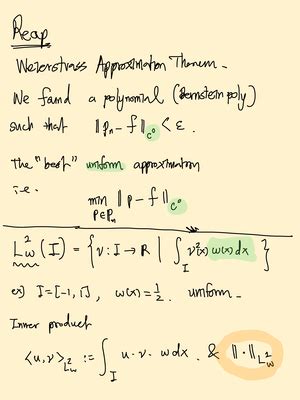 Reap
Weierstrass Approximation Theorem.
We found a polynomial (Bernstein poly)
such that ‖pn - f‖_{C⁰} < ε.
the "best" uniform approximation
i.e.
min_{p∈Pn} ‖p - f‖_{C⁰}
L²_w(I) = { v: I → R | ∫_I v²(x) w(x) dx }
ex) I=[-1, 1], w(x)=½. uniform.
Inner product
⟨u,v⟩_{L²_w} := ∫_I u·v· w dx. & ‖·‖_{L²_w}